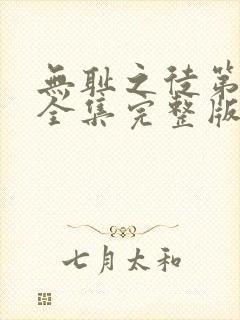 無耻之徒第
全集完整版
七月太和